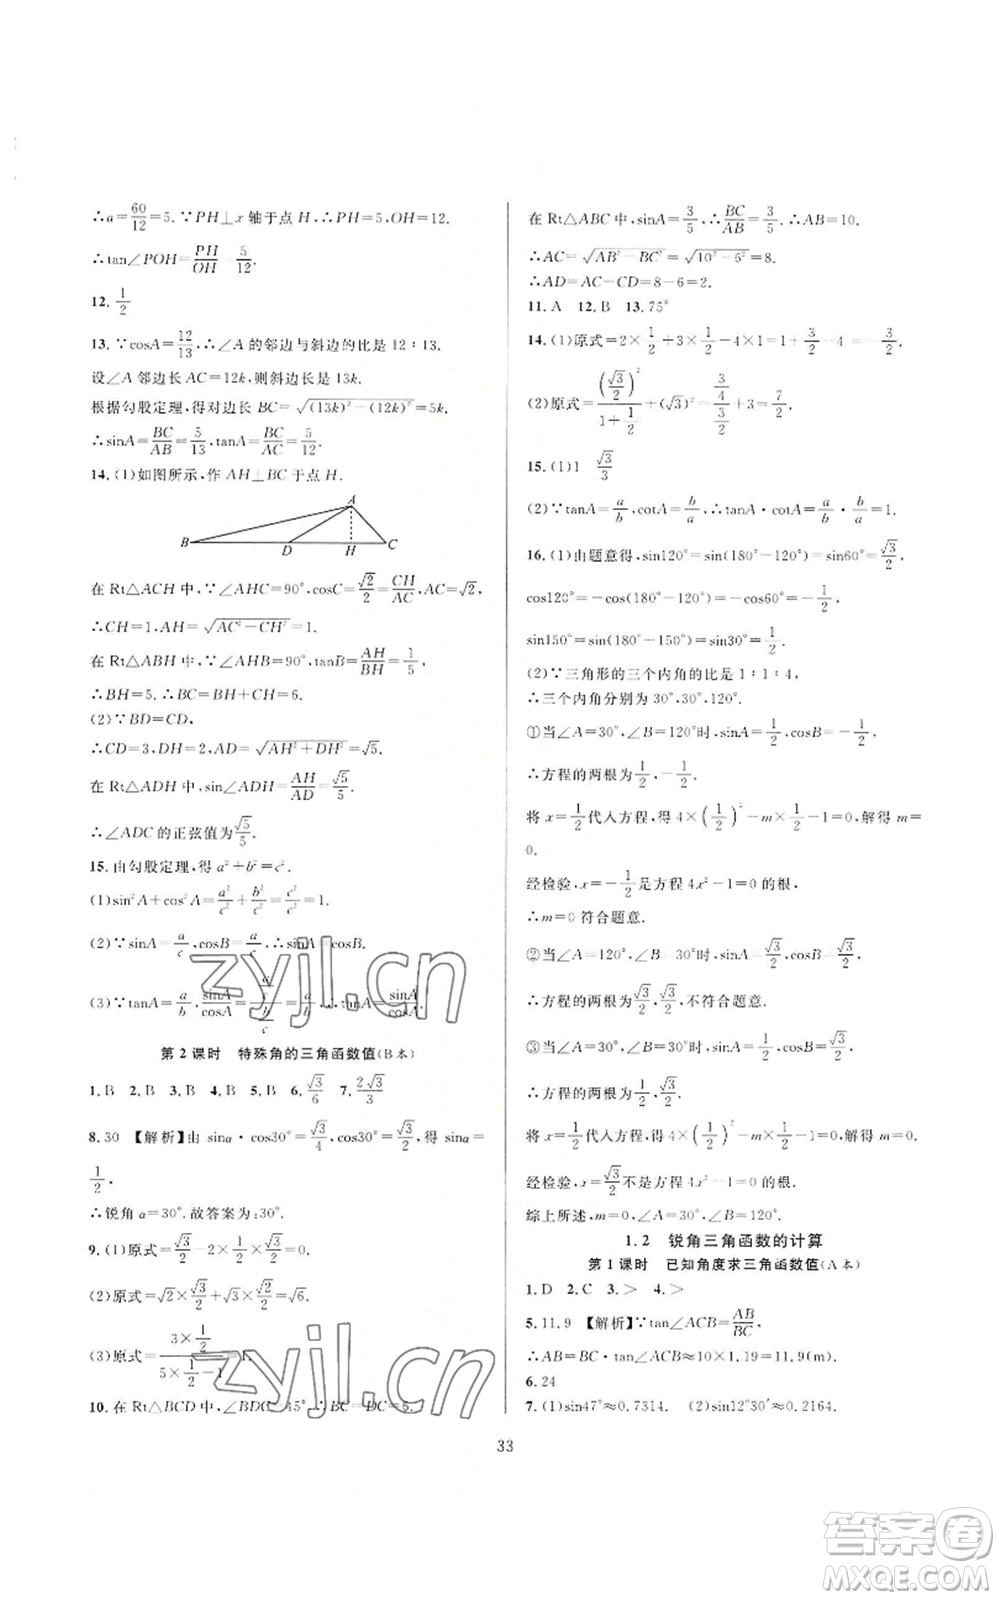 ∴a=60/12=5.∵PH⊥x 轴于点 H,∴PH=5,OH=12.
∴tan∠POH=PH/OH=5/12.
12. 1/2
13.∵cosA=12/13,∴∠A 的邻边与斜边的比是 12∶13.
设∠A 邻边长 AC=12k,则斜边长是 13k.
根据勾股定理,得对边长 BC=√((13k)²-(12k)²)=5k.
∴sinA=BC/AB=5/13,tanA=BC/AC=5/12.
14.(1)如图所示,作 AH⊥BC 于点 H.
A
B D H C
在 Rt△ACH 中,∵∠AHC=90°,√2/2=CH/AC,AC=√2,
∴CH=1,AH=√(AC²-CH²)=1.
在 Rt△ABH 中,∵∠AHB=90°,tanB=AH/BH=1/5,
∴BH=5.∴BC=BH+CH=6.
(2)∵BD=CD,
∴CD=3,DH=2,AD=√(AH²+DH²)=√5.
在 Rt△ADH 中,sin∠ADH=AH/AD=√5/5.
∴∠ADC 的正弦值为√5/5.
15.由勾股定理,得 a²+b²=c².
(1)sin²A+cos²A=a²/c²+b²/c²=c²/c²=1.
(2)∵sinA=a/c,cosB=a/c,∴sinA=cosB.
(3)∵tanA=a/b,sinA/cosA=(a/c)/(b/c)=a/b,∴tanA=sinA/cosA.
第 2 课时 特殊角的三角函数值(B本)
1.B 2.B 3.B 4.B 5.B 6.√3/6 7.2√3/3
8.30 【解析】由 sinα·cos30°=√3/4,cos30°=√3/2,得 sinα=
1/2.
∴锐角 α=30°.故答案为:30°.
9.(1)原式=√3/2-2×√3/2=-√3/2.
(2)原式=√2×√3/2+√3×√2/2=√6.
(3)原式=(3×1/2)/(5×1/2-1)=1.
10.在 Rt△BCD 中,∠BDC=45°,∴BC=DC=6.
在 Rt△ABC 中,sinA=3/5,∴BC/AB=3/5.∴AB=10.
∴AC=√(AB²-BC²)=√(10²-6²)=8.
∴AD=AC-CD=8-6=2.
11.A 12.B 13.75°
14.(1)原式=2×1/2+3×1/2-4×1=1+3/2-4=-3/2.
(2)原式=(√3/2)²/(1+1/2)+(√3)²=(3/4)/(3/2)+3=7/2.
15.(1)1 √3/3
(2)∵tanA=a/b,cotA=b/a,∴tanA·cotA=a/b·b/a=1.
16.(1)由题意得,sin120°=sin(180°-120°)=sin60°=√3/2,
cos120°=-cos(180°-120°)=-cos60°=-1/2,
sin150°=sin(180°-150°)=sin30°=1/2.
(2)∵三角形的三个内角的比是 1∶1∶4,
∴三个内角分别为 30°,30°,120°.
①当∠A=30°,∠B=120°时,sinA=1/2,cosB=-1/2,
∴方程的两根为1/2,-1/2.
将 x=1/2代入方程,得 4×(1/2)²-m×1/2-1=0,解得 m=
0.
经检验,x=-1/2是方程 4x²-1=0 的根.
∴m=0 符合题意.
②当∠A=120°,∠B=30°时,sinA=√3/2,cosB=√3/2,
∴方程的两根为√3/2,√3/2,不符合题意.
③当∠A=30°,∠B=30°时,sinA=1/2,cosB=√3/2,
∴方程的两根为1/2,√3/2.
将 x=1/2代入方程,得 4×(1/2)²-m×1/2-1=0,解得 m=0.
经检验,x=√3/2不是方程 4x²-1=0 的根.
综上所述,m=0,∠A=30°,∠B=120°.
1.2 锐角三角函数的计算
第 1 课时 已知角度求三角函数值(A本)
1.D 2.C 3.> 4.>
5.11.9 【解析】∵tan∠ACB=AB/BC,
∴AB=BC·tan∠ACB≈10×1.19=11.9(m).
6.24
7.(1)sin47°≈0.7314. (2)sin12°30′≈0.2164.
33
zyjl.cn
zyjl.cn
答案卷
MXQE.COM